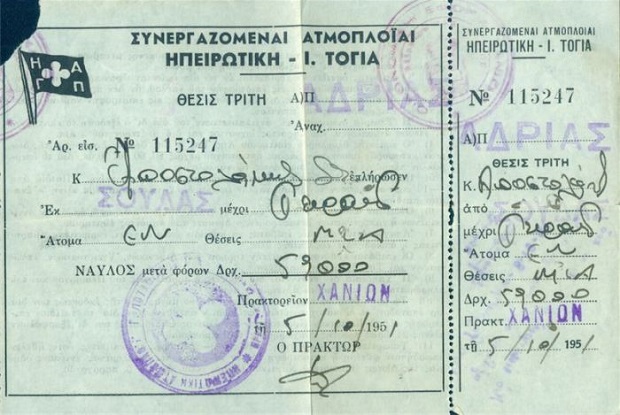 Η Α
Γ Π
ΣΥΝΕΡΓΑΖΟΜΕΝΑΙ ΑΤΜΟΠΛΟΪΑΙ
ΗΠΕΙΡΩΤΙΚΗ - Ι. ΤΟΓΙΑ
ΘΕΣΙΣ ΤΡΙΤΗ Α)Π ΑΔΡΙΑΣ
Ἀναχ.
Ἀρ. εἰσ. № 115247
Κ ἐπλήρωσεν
ΣΟΥΔΑΣ
Ἐκ μέχρι Πειραιᾶ
Ἄτομα ΕΝ Θέσεις ΜΙΑ
ΝΑΥΛΟΣ μετά φόρων Δρχ. 59000
Πρακτορεῖον ΧΑΝΙΩΝ
5/10/1951
Ο ΠΡΑΚΤΩΡ
ΣΥΝΕΡΓΑΖΟΜΕΝΑΙ ΑΤΜΟΠΛΟΪΑΙ
ΗΠΕΙΡΩΤΙΚΗ - Ι. ΤΟΓΙΑ
№ 115247
Α)Π ΑΔΡΙΑΣ
ΘΕΣΙΣ ΤΡΙΤΗ
Κ.
ἀπό
μέχρι Πειραιᾶ
Ἄτομα ΕΝ
Θέσεις ΜΙΑ
Δρχ. 59000
Πρακτ. ΧΑΝΙΩΝ
τῇ 5/10/1951